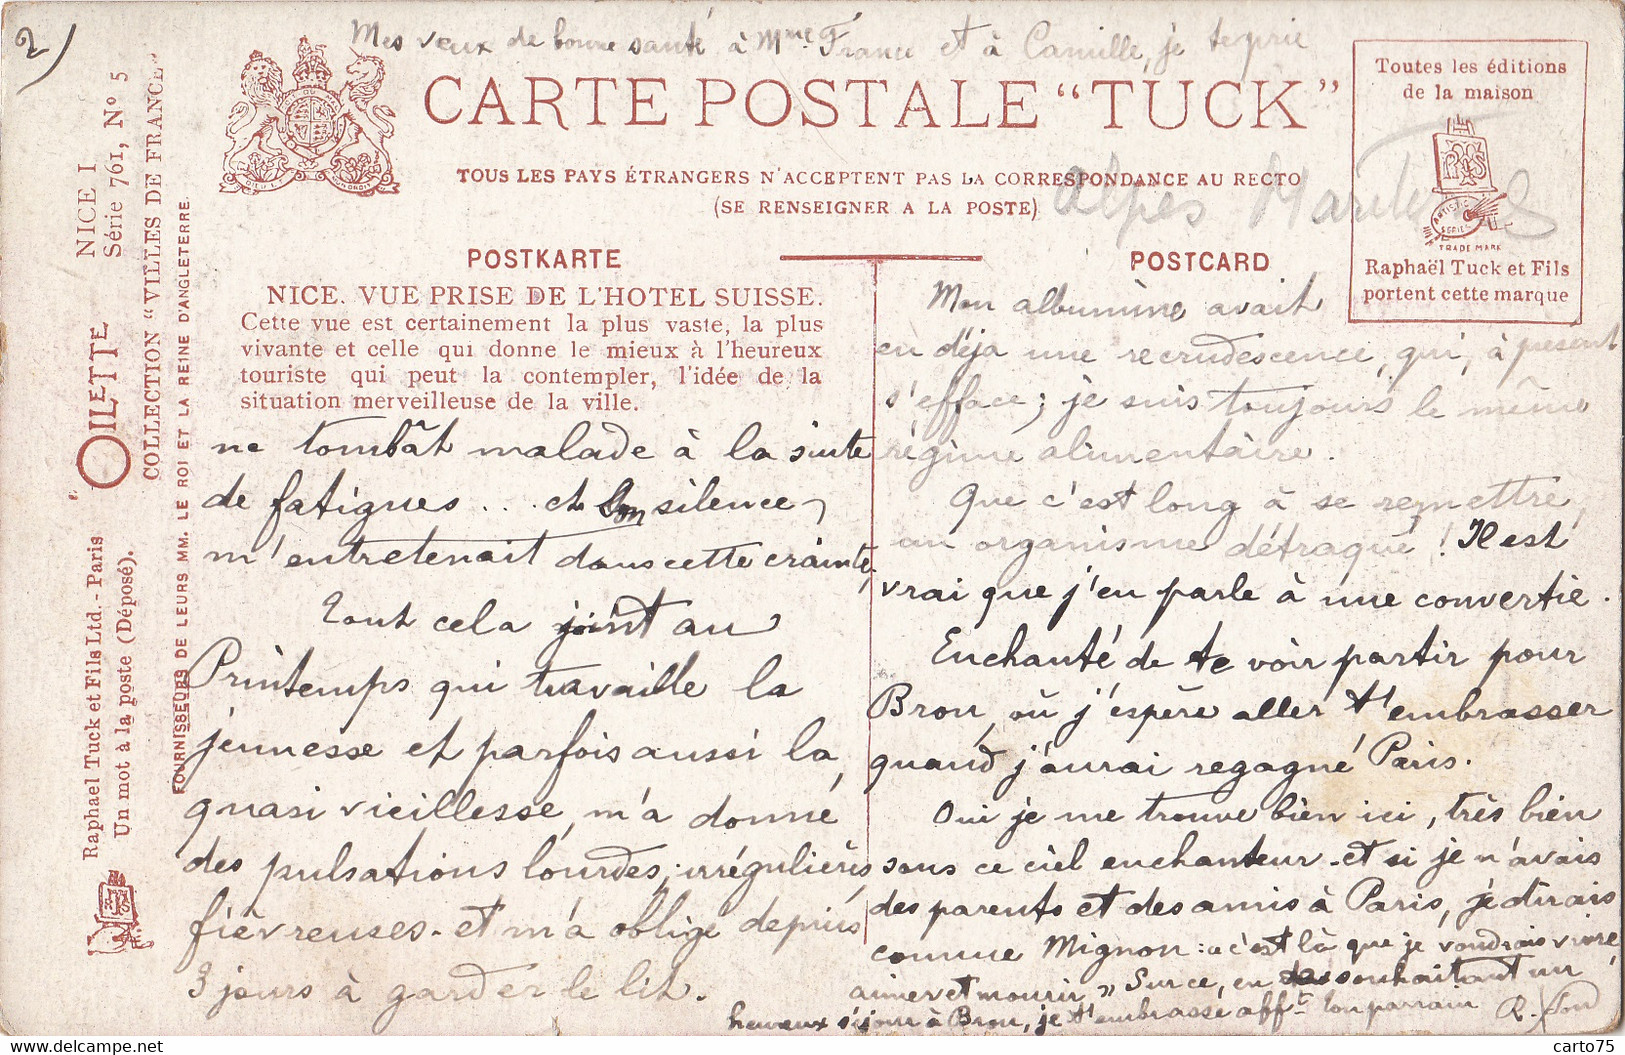 2)
Mes vœux de bonne santé à Mme France et à Camille, je te prie
CARTE POSTALE “TUCK”
TOUS LES PAYS ÉTRANGERS N'ACCEPTENT PAS LA CORRESPONDANCE AU RECTO
(SE RENSEIGNER A LA POSTE)
Alpes Maritimes
Toutes les éditions
de la maison
ARTISTIC
SERIES
TRADE MARK
Raphaël Tuck et Fils
portent cette marque
NICE I
Série 761, No 5
COLLECTION “VILLES DE FRANCE”
“OILETTE
FOURNISSEURS DE LEURS MM. LE ROI ET LA REINE D'ANGLETERRE.
Raphael Tuck et Fils Ltd. - Paris
Un mot à la poste (Déposé).
POSTKARTE
POSTCARD
NICE. VUE PRISE DE L'HOTEL SUISSE.
Cette vue est certainement la plus vaste, la plus
vivante et celle qui donne le mieux à l'heureux
touriste qui peut la contempler, l'idée de la
situation merveilleuse de la ville.
ne tombât malade à la suite
de fatigues ... et son silence
m'entretenait dans cette crainte,
Tout cela joint au
Printemps qui travaille la
jeunesse et parfois aussi la
quasi vieillesse, m'a donné
des pulsations lourdes, irrégulières
fiévreuses - et m'a obligé depuis
3 jours à garder le lit.
Mon albumine avait
eu déja une recrudescence, qui, à présent
s'efface; je suis toujours le même
régime alimentaire.
Que c'est long à se remettre,
un organisme détraqué ! Il est
vrai que j'en parle à une convertie.
Enchanté de te voir partir pour
Bron, où j'espère aller t'embrasser
quand j'aurai regagné Paris.
Oui je me trouve bien ici, très bien
sous ce ciel enchanteur - et si je n'avais
des parents et des amis à Paris, je dirais
comme Mignon : "c'est là que je voudrais vivre
aimer et mourir" Sur ce, en te souhaitant un
heureux séjour à Bron, je t'embrasse afft Ton parrain
carto75